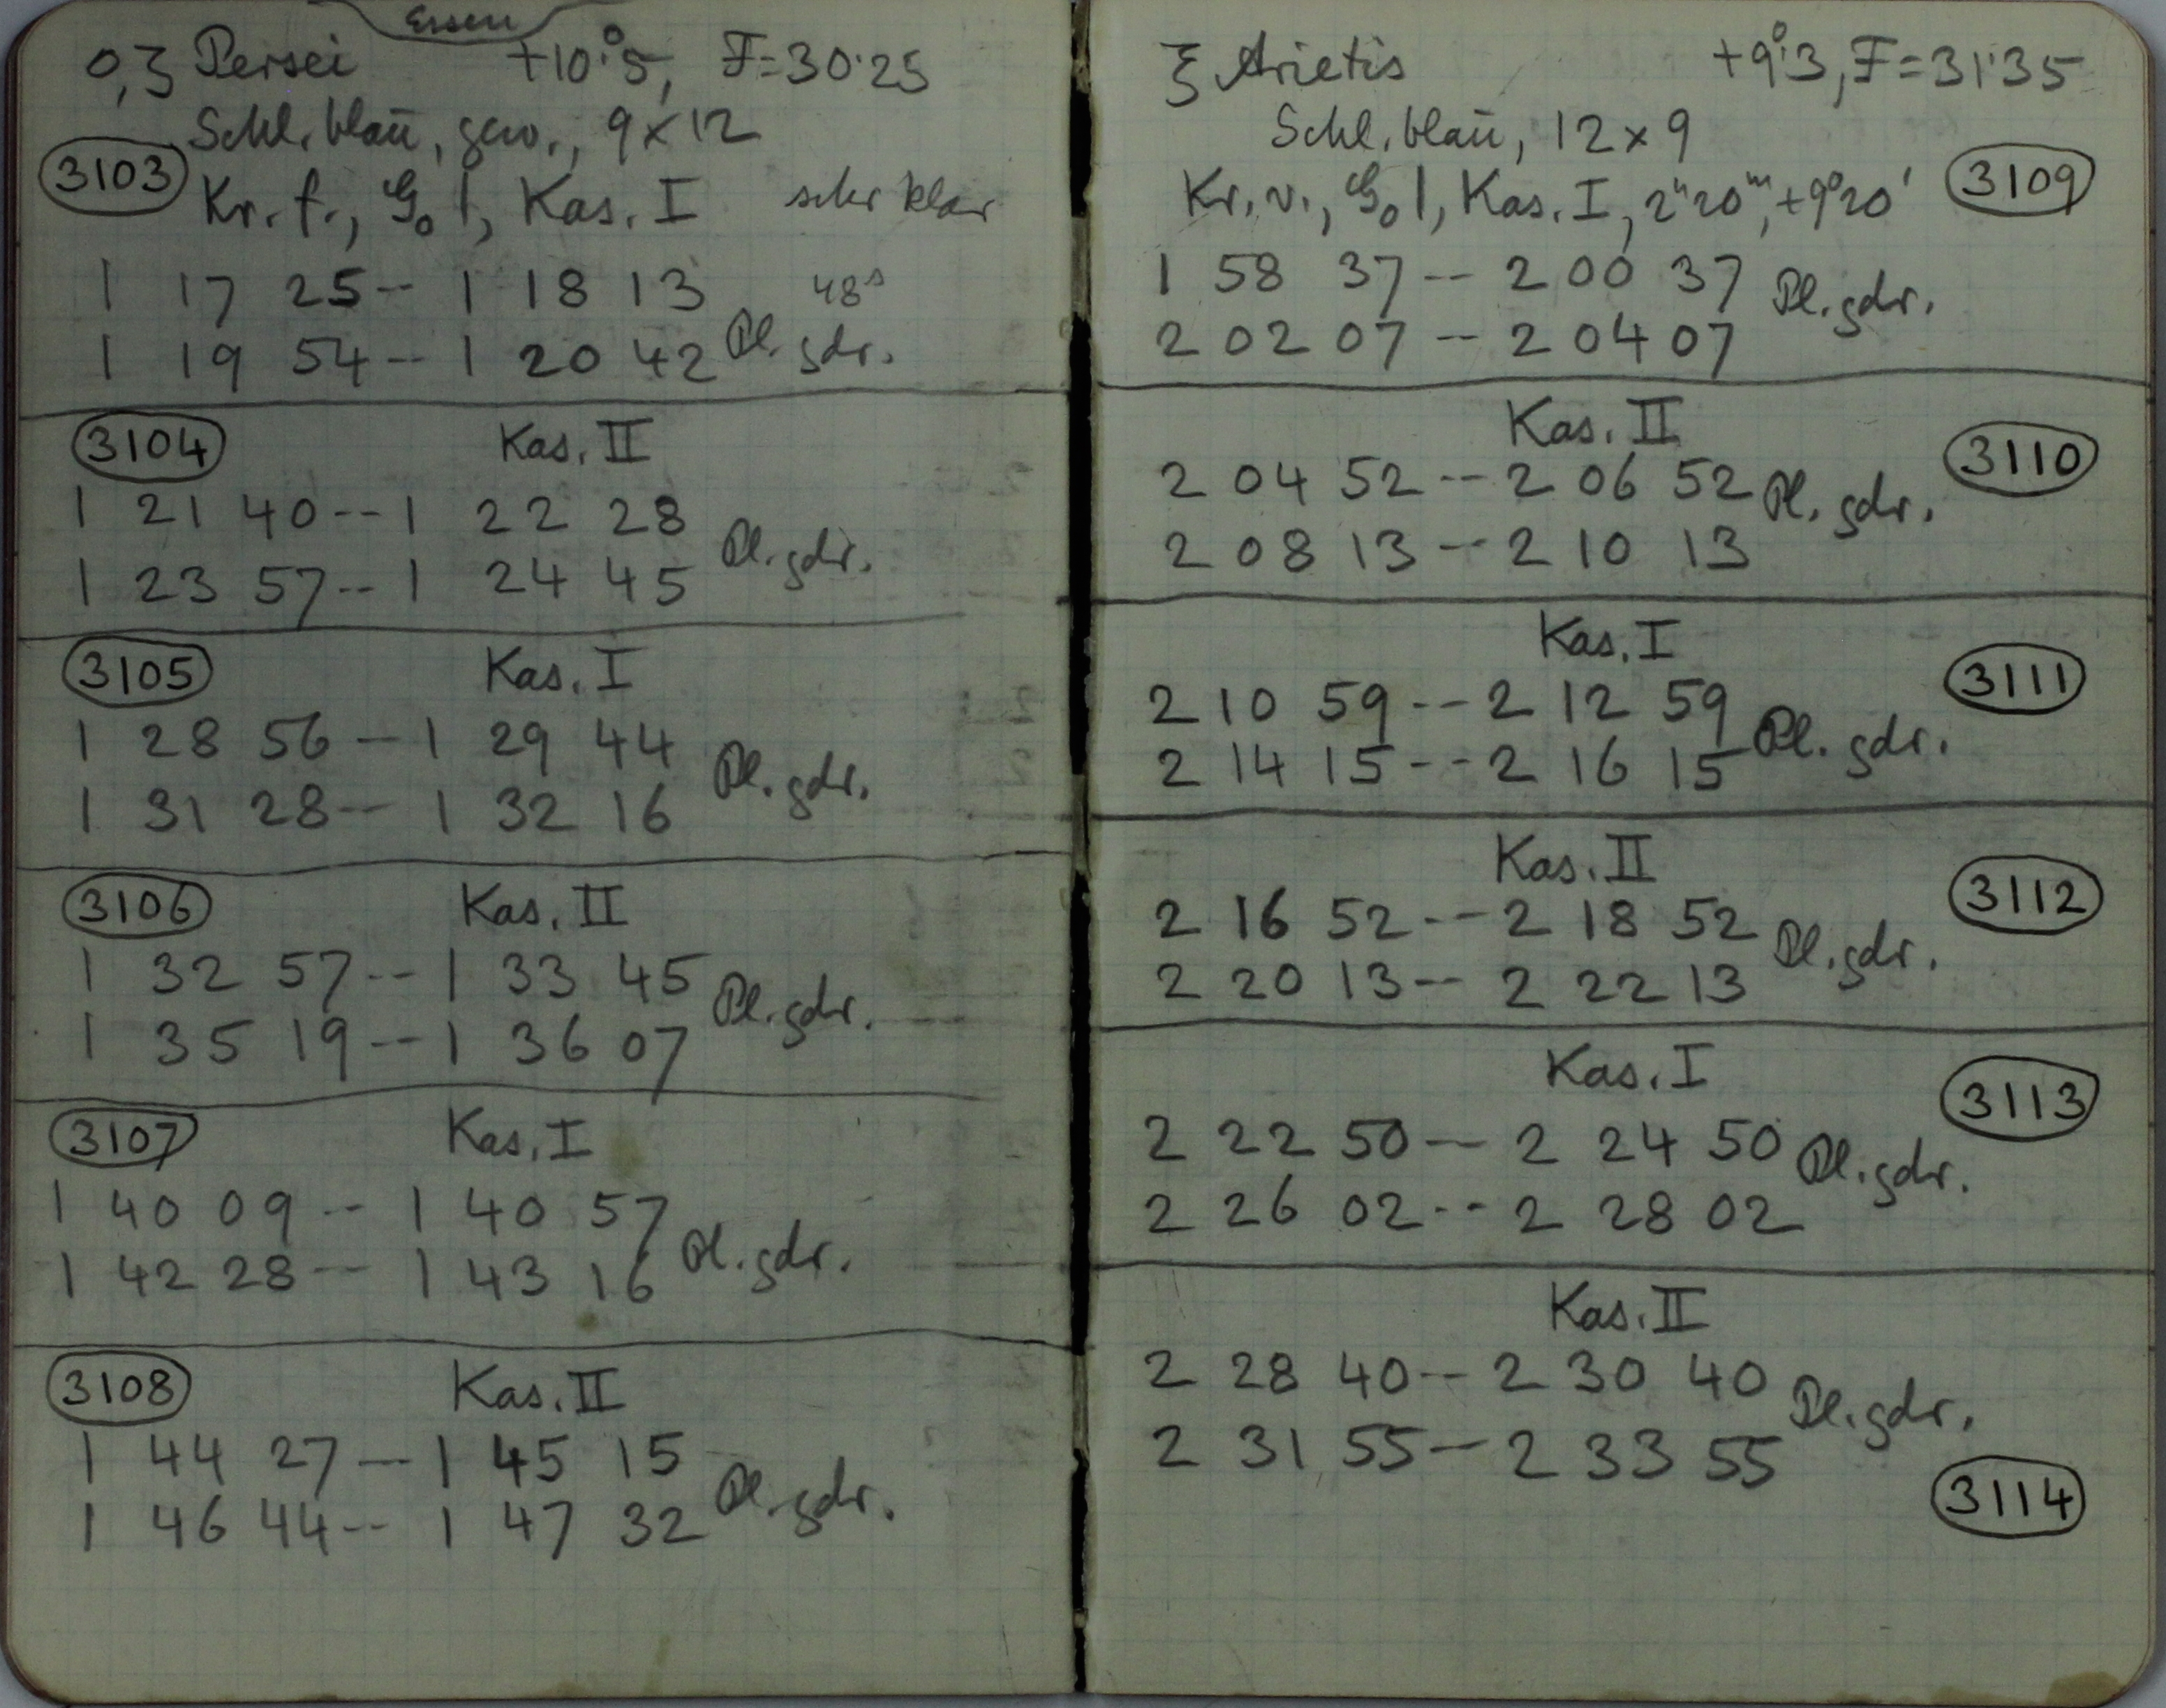 Essen
ο,ζ Persei +10°.5, F=30.25
Schl. blau, gew., 9×12
3103 Kr. f., G₀ l, Kas. I sehr klar
1 17 25 -- 1 18 13 48ˢ
1 19 54 -- 1 20 42 Pl. gdr.
3104 Kas. II
1 21 40 -- 1 22 28
1 23 57 -- 1 24 45 Pl. gdr.
3105 Kas. I
1 28 56 -- 1 29 44
1 31 28 -- 1 32 16 Pl. gdr.
3106 Kas. II
1 32 57 -- 1 33 45
1 35 19 -- 1 36 07 Pl. gdr.
3107 Kas. I
1 40 09 -- 1 40 57
1 42 28 -- 1 43 16 Pl. gdr.
3108 Kas. II
1 44 27 -- 1 45 15
1 46 44 -- 1 47 32 Pl. gdr.
ξ Arietis +9°.3, F=31.35
Schl. blau, 12×9
Kr. v., G₀ l, Kas. I, 2ʰ20ᵐ, +9°20' 3109
1 58 37 -- 2 00 37 Pl. gdr.
2 02 07 -- 2 04 07
Kas. II 3110
2 04 52 -- 2 06 52 Pl. gdr.
2 08 13 -- 2 10 13
Kas. I 3111
2 10 59 -- 2 12 59
2 14 15 -- 2 16 15 Pl. gdr.
Kas. II 3112
2 16 52 -- 2 18 52 Pl. gdr.
2 20 13 -- 2 22 13
Kas. I 3113
2 22 50 -- 2 24 50 Pl. gdr.
2 26 02 -- 2 28 02
Kas. II
2 28 40 -- 2 30 40 Pl. gdr.
2 31 55 -- 2 33 55
3114